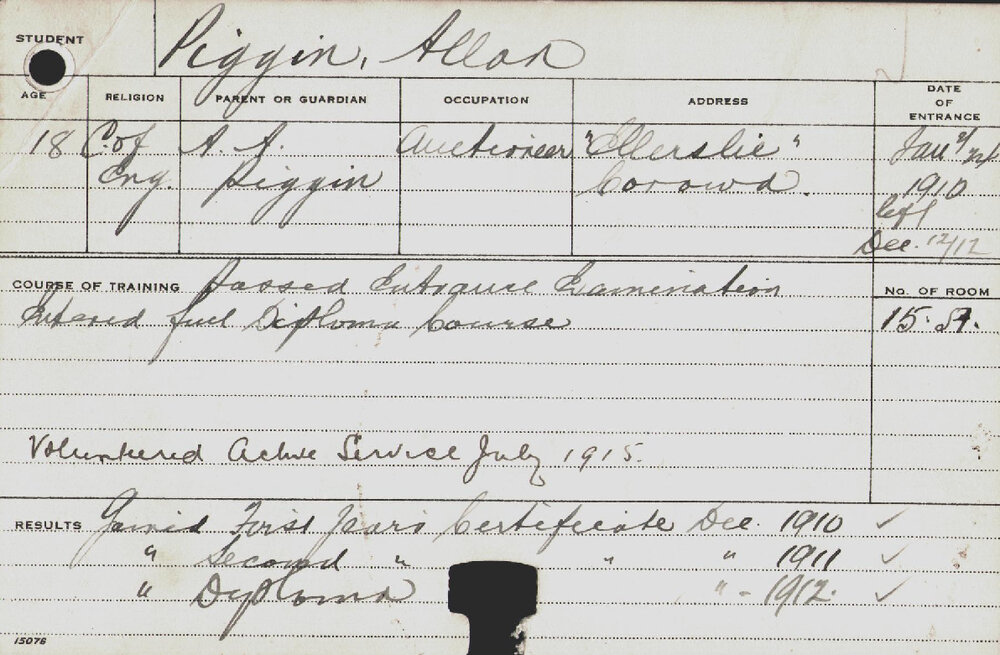 STUDENT Piggin, Allan
AGE RELIGION PARENT OR GUARDIAN OCCUPATION ADDRESS DATE OF ENTRANCE
18 C. of A. A. Auctioneer "Ellerslie" Jan
Eng. Piggin Corowa. 1910
left
Dec. 12/12
COURSE OF TRAINING Passed Entrance Examination No. OF ROOM
Entered full Diploma Course 15.
Volunteered Active Service July 1915.
RESULTS Gained First Years Certificate Dec. 1910 ✓
" Second " " " 1911 ✓
" Diploma " - 1912. ✓
15076